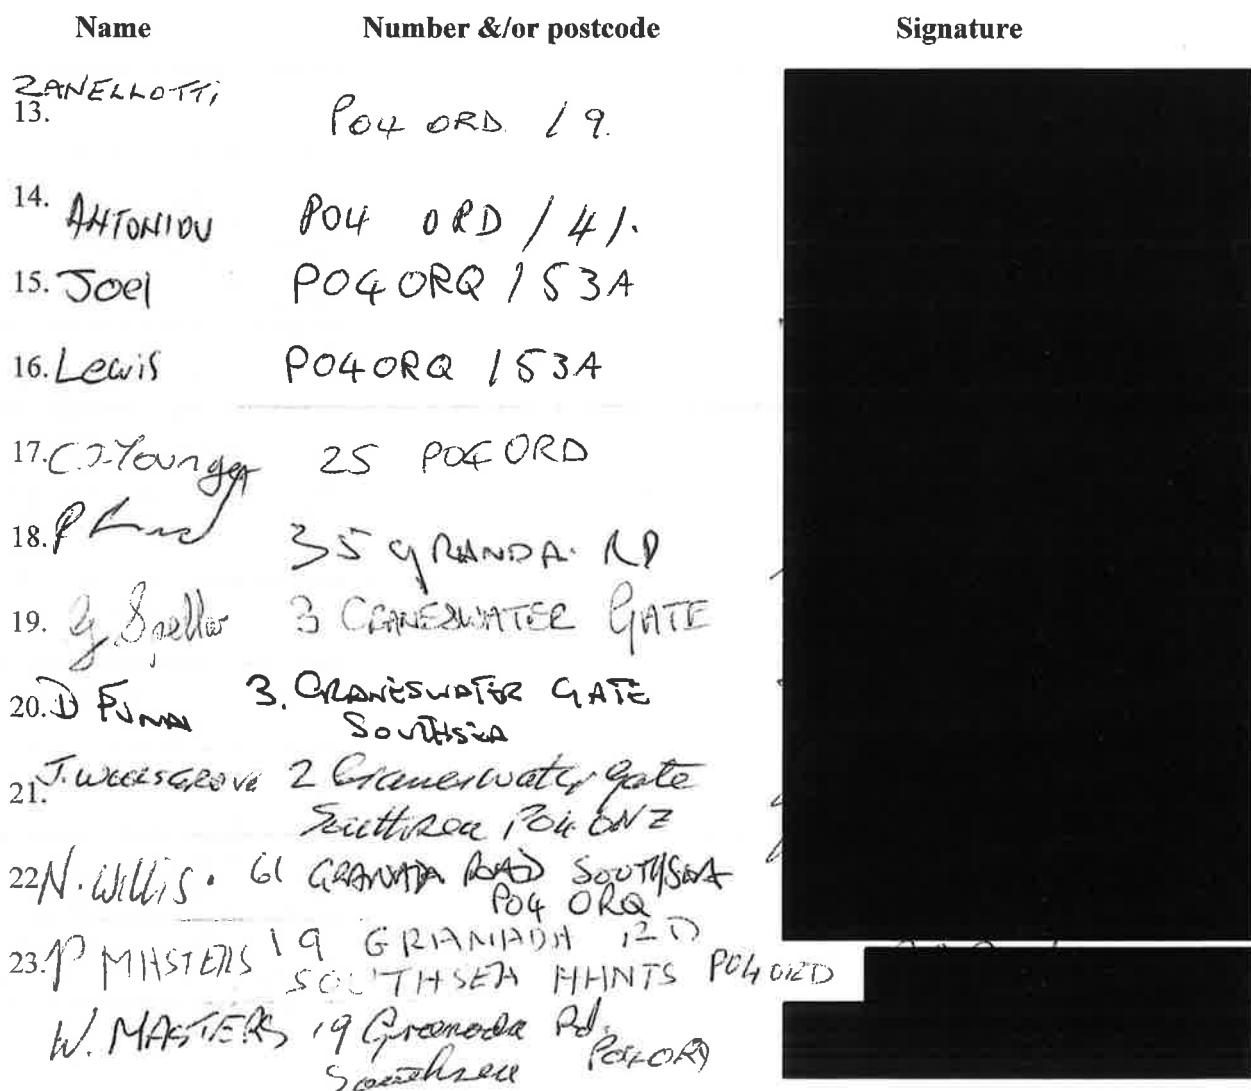 Name Number &/or postcode Signature
ZANELLOTTi
13. PO4 ORD 19.
14. ANTONIOU PO4 ORD / 41.
15. Joel PO4 ORQ / 53A
16. Lewis PO4 ORQ / 53A
17. C.J. Younger 25 PO4 ORD
18. P 35 GRANDA RD
19. G Speller 3 CRANESWATER GATE
20. D 3. CRANESWATER GATE
SOUTHSEA
21. J. WELLSGROVE 2 Craneswater Gate
Southsea PO4 ONZ
22 N. Willis. 61 GRANADA ROAD SOUTHSEA
PO4 ORQ
23. P MASTERS 19 GRANADA RD
SOUTHSEA HANTS PO4 ORD
W. MASTERS 19 Granada Rd.
Southsea PO4 ORD